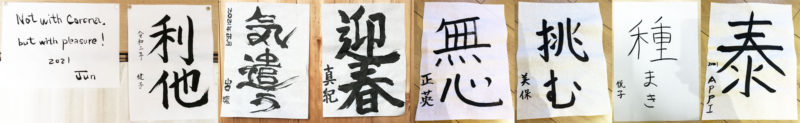 Not with Corona.
but with pleasure!
2021
Jun
利他
令和二年
気遣う
迎春
真紀
無心
正英
挑む
美保
種まき
悦子
泰
2021 APPI